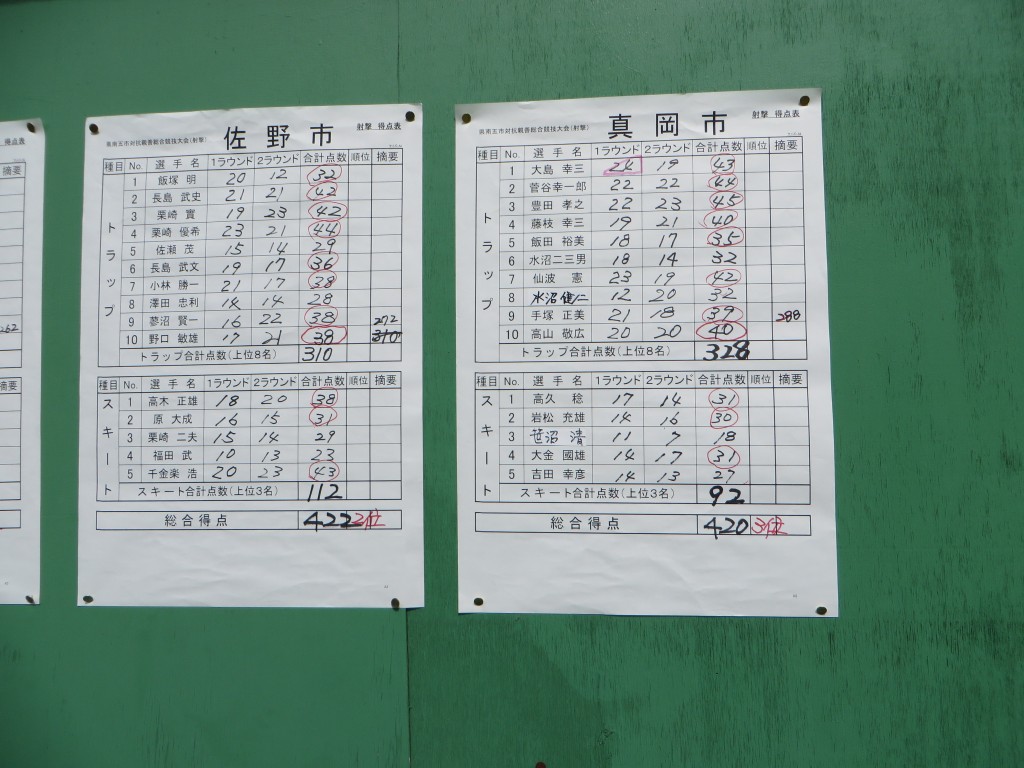 得点表
摘要
262
摘要
佐野市
県南五市対抗親善総合競技大会(射撃)
射撃 得点表
種目 No. 選手名 1ラウンド 2ラウンド 合計点数 順位 摘要
トラップ
1 飯塚 明 20 12 32
2 長島 武史 21 21 42
3 栗崎 實 19 23 42
4 栗崎 優希 23 21 44
5 佐瀬 茂 15 14 29
6 長島 武文 19 17 36
7 小林 勝一 21 17 38
8 澤田 忠利 14 14 28
9 蓼沼 賢一 16 22 38 272
10 野口 敏雄 17 21 38 310
トラップ合計点数(上位8名) 310
種目 No. 選手名 1ラウンド 2ラウンド 合計点数 順位 摘要
スキート
1 高木 正雄 18 20 38
2 原 大成 16 15 31
3 栗崎 二夫 15 14 29
4 福田 武 10 13 23
5 千金楽 浩 20 23 43
スキート合計点数(上位3名) 112
総合得点 422 2位
真岡市
県南五市対抗親善総合競技大会(射撃)
射撃 得点表
種目 No. 選手名 1ラウンド 2ラウンド 合計点数 順位 摘要
トラップ
1 大島 幸三 24 19 43
2 菅谷幸一郎 22 22 44
3 豊田 孝之 22 23 45
4 藤枝 幸三 19 21 40
5 飯田 裕美 18 17 35
6 水沼二三男 18 14 32
7 仙波 憲 23 19 42
8 水沼健二 12 20 32
9 手塚 正美 21 18 39 288
10 高山 敬広 20 20 40
トラップ合計点数(上位8名) 328
種目 No. 選手名 1ラウンド 2ラウンド 合計点数 順位 摘要
スキート
1 高久 稔 17 14 31
2 岩松 充雄 14 16 30
3 笹沼 清 11 7 18
4 大金 國雄 14 17 31
5 吉田 幸彦 14 13 27
スキート合計点数(上位3名) 92
総合得点 420 3位